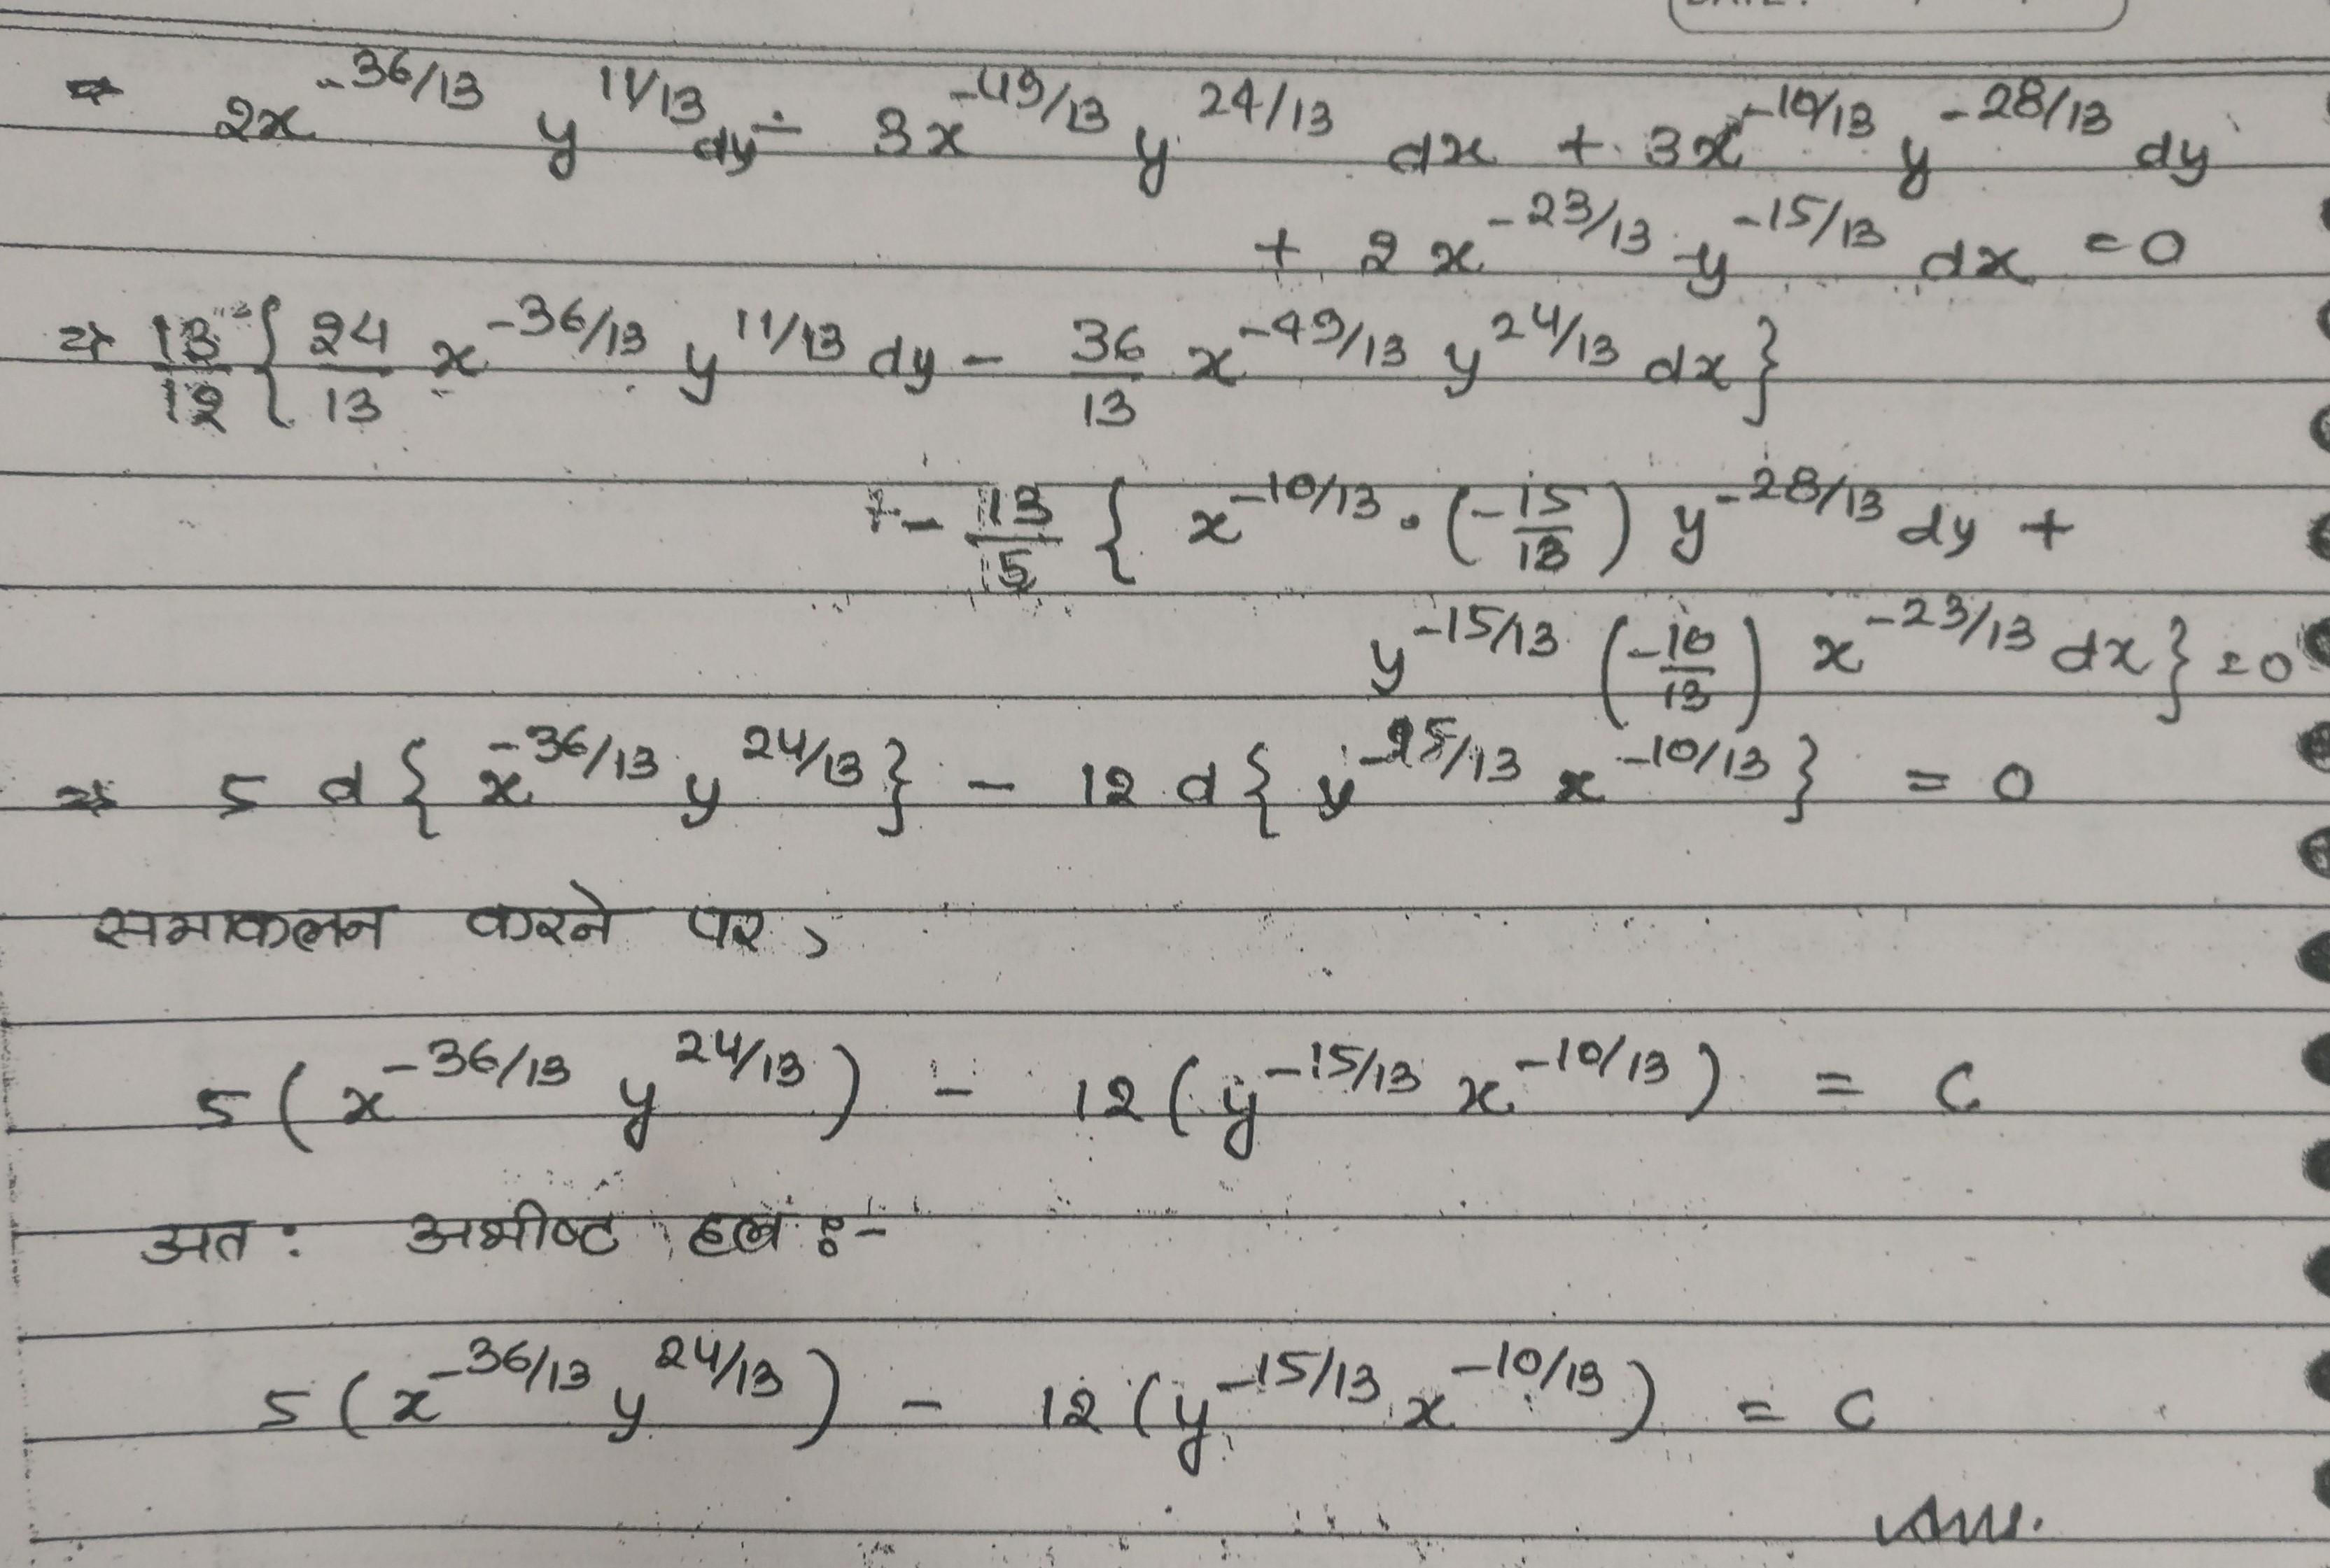 ⇒ 2x^{-36/13} y^{11/13} dy - 3x^{-49/13} y^{24/13} dx + 3x^{-10/13} y^{-28/13} dy
+ 2x^{-23/13} y^{-15/13} dx = 0
⇒ 13/12 { 24/13 x^{-36/13} y^{11/13} dy - 36/13 x^{-49/13} y^{24/13} dx }
- 13/5 { x^{-10/13} · (-15/13) y^{-28/13} dy +
y^{-15/13} (-10/13) x^{-23/13} dx } = 0
⇒ 5 d { x^{-36/13} y^{24/13} } - 12 d { y^{-15/13} x^{-10/13} } = 0
समाकलन करने पर,
5 ( x^{-36/13} y^{24/13} ) - 12 ( y^{-15/13} x^{-10/13} ) = c
अत: अभीष्ट हल :-
5 ( x^{-36/13} y^{24/13} ) - 12 ( y^{-15/13} x^{-10/13} ) = c
Ans.